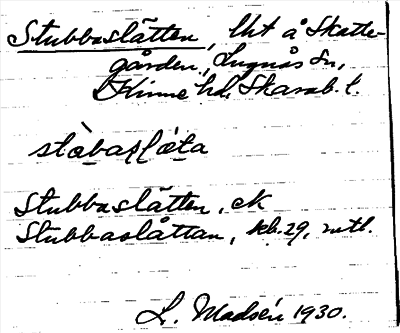 Stubbaslätten, Uit å Skatte-
gården, Lugnås Sn,
Kinne hd, Skarab. l.
stàbaslǽta
Stubbaslätten, ek
Stubbaslåttan, kb. 29, mtl.
L. Madsén 1930.